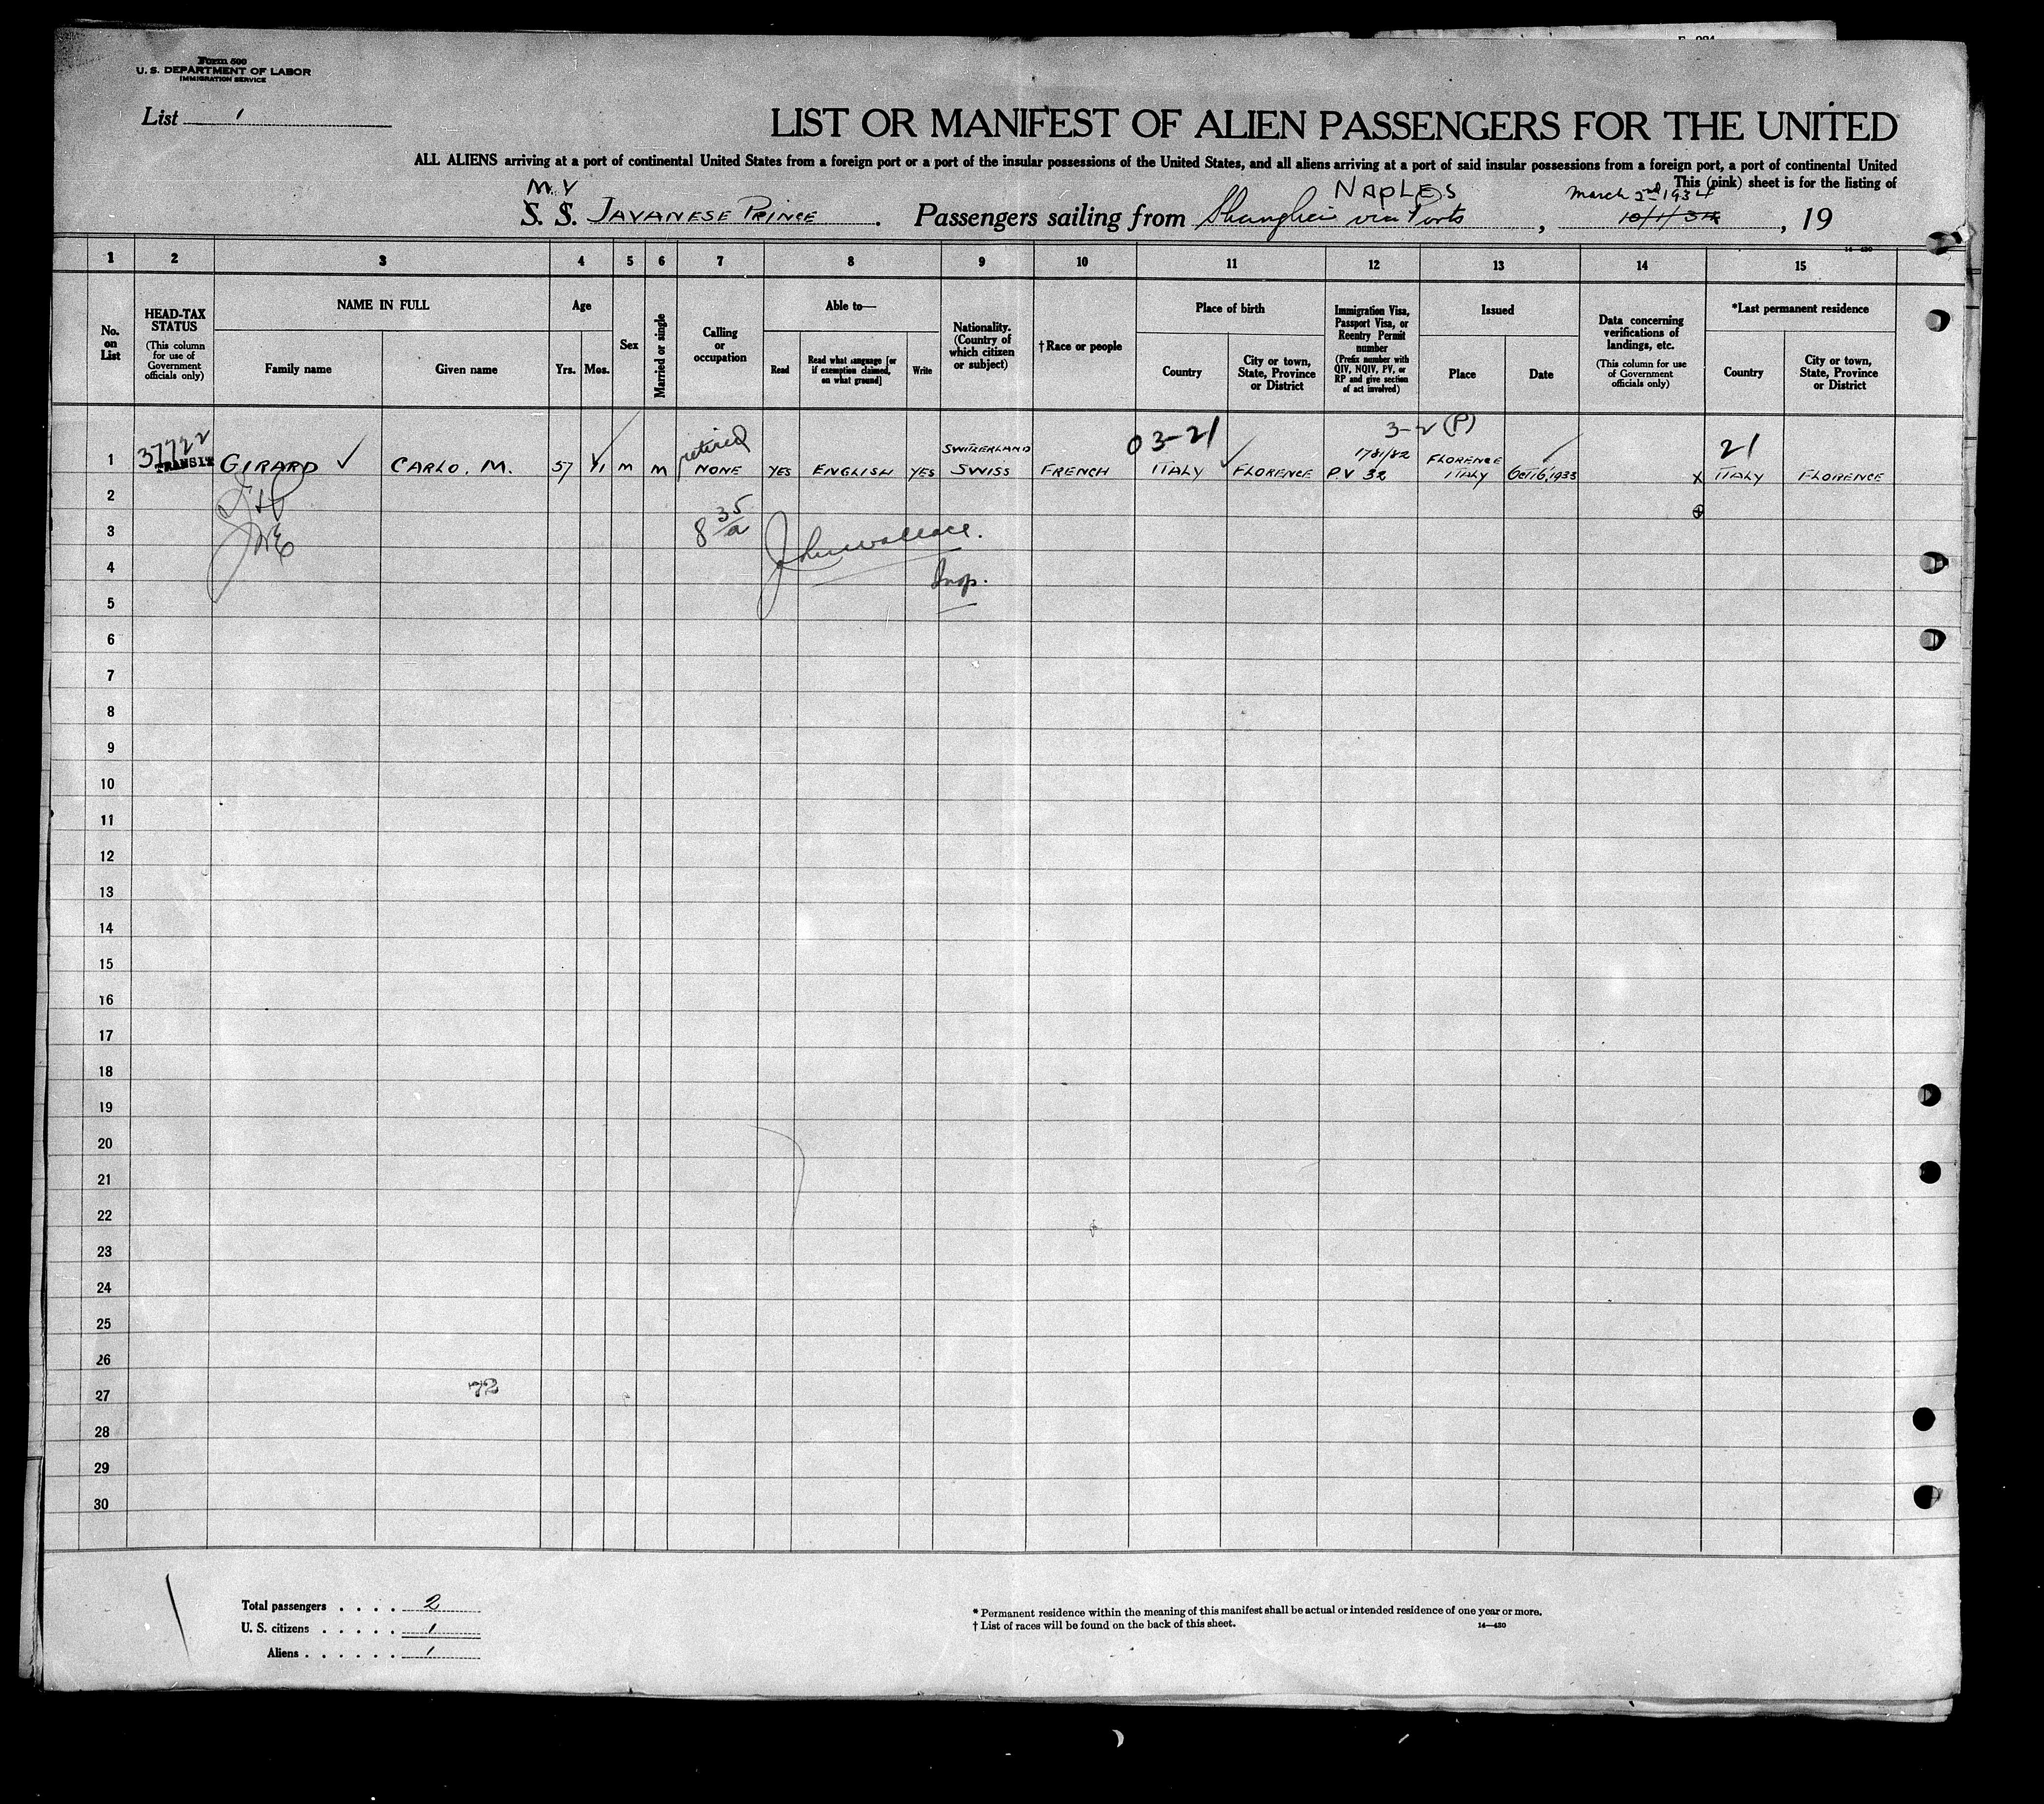 Form 500
U. S. DEPARTMENT OF LABOR
IMMIGRATION SERVICE
List 1
LIST OR MANIFEST OF ALIEN PASSENGERS FOR THE UNITED
ALL ALIENS arriving at a port of continental United States from a foreign port or a port of the insular possessions of the United States, and all aliens arriving at a port of said insular possessions from a foreign port, a port of continental United
This (pink) sheet is for the listing of
M.V NAPLES March 2nd 1934
S. S. JAVANESE PRINCE. Passengers sailing from Shanghai via Ports, 10/1/34, 19
14-430
1 2 3 4 5 6 7 8 9 10 11 12 13 14 15
No. on List
HEAD-TAX STATUS
(This column for use of Government officials only)
NAME IN FULL
Family name
Given name
Age
Yrs.
Mos.
Sex
Married or single
Calling or occupation
Able to—
Read
Read what language [or if exemption claimed, on what ground]
Write
Nationality. (Country of which citizen or subject)
†Race or people
Place of birth
Country
City or town, State, Province or District
Immigration Visa, Passport Visa, or Reentry Permit number
(Prefix number with QIV, NQIV, PV, or RP and give section of act involved)
Issued
Place
Date
Data concerning verifications of landings, etc.
(This column for use of Government officials only)
*Last permanent residence
Country
City or town, State, Province or District
37722 retired SWITZERLAND 03-21 3-2 (P) 1781/82 FLORENCE 21
1 TRANSIT GIRARD CARLO. M. 57 M M NONE YES ENGLISH YES SWISS FRENCH ITALY FLORENCE P.V 32 ITALY Oct 16, 1933 x ITALY FLORENCE
2
3 8 35/a John Wallace.
4 Insp.
5
6
7
8
9
10
11
12
13
14
15
16
17
18
19
20
21
22
23
24
25
26
27 72
28
29
30
Total passengers . . . . 2
U. S. citizens . . . . . 1
Aliens . . . . . . 1
* Permanent residence within the meaning of this manifest shall be actual or intended residence of one year or more.
† List of races will be found on the back of this sheet.
14—430